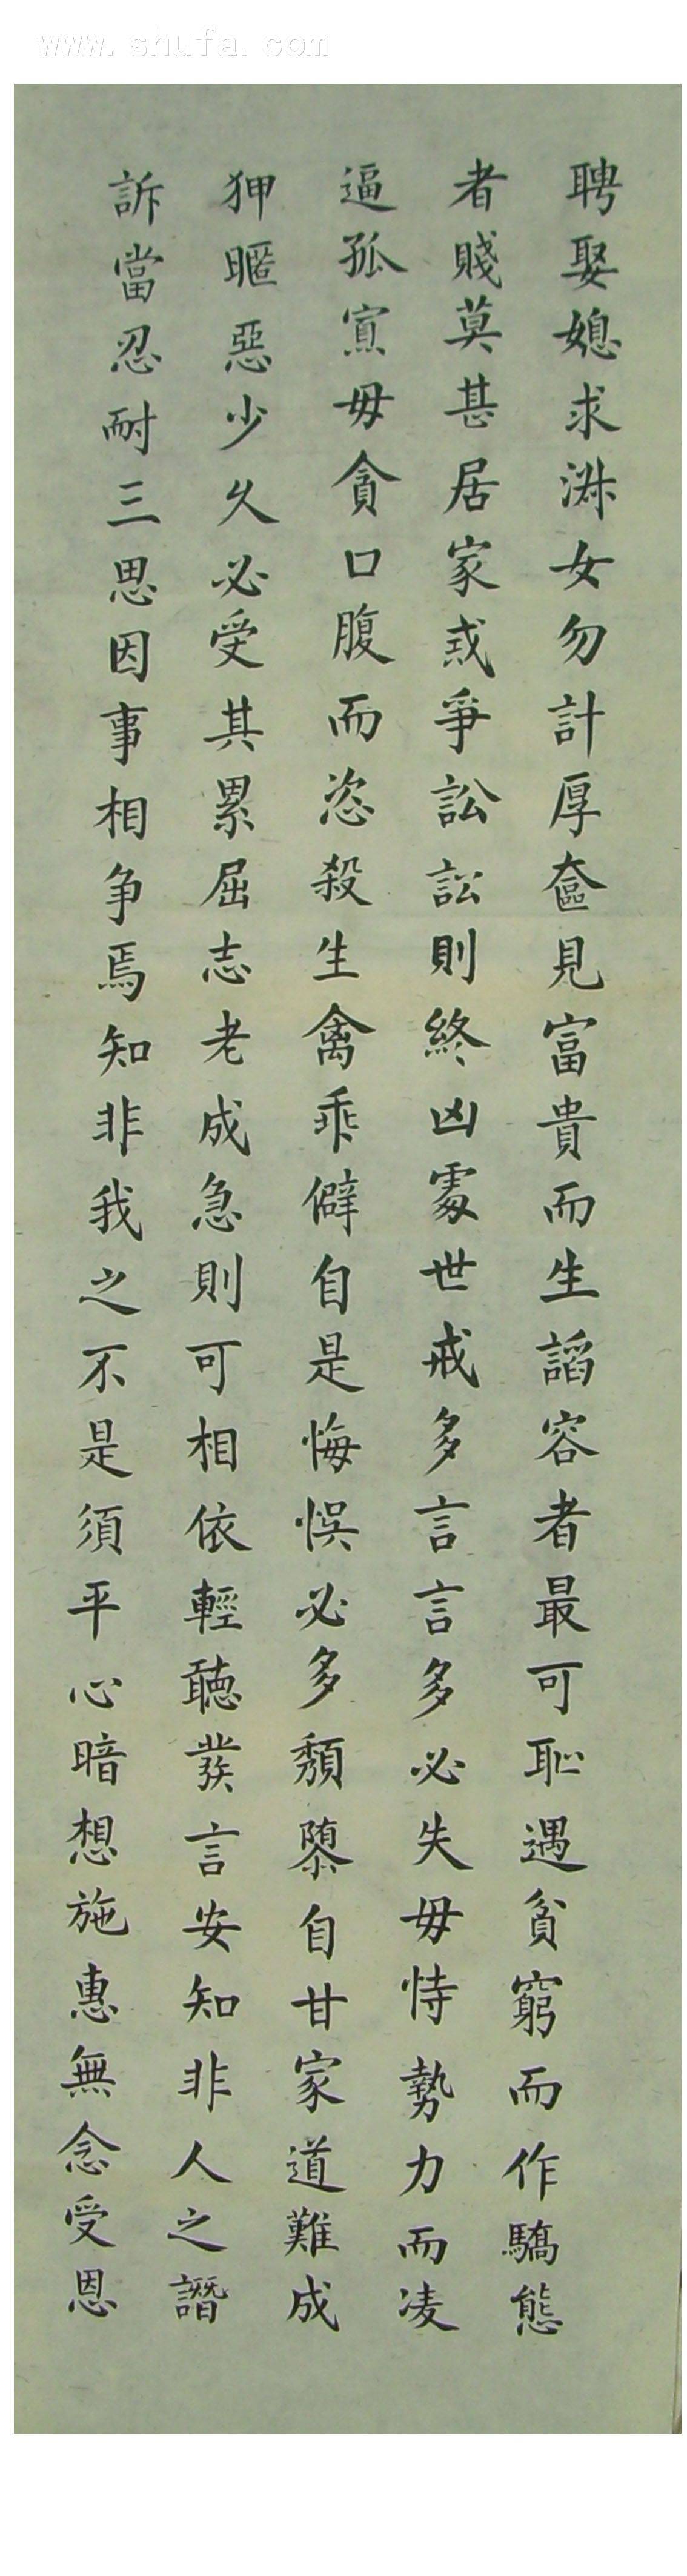 www.shufa.com
聘娶媳求淑女勿計厚奩見富貴而生諂容者最可恥遇貧窮而作驕態
者賤莫甚居家戒爭訟訟則終凶處世戒多言言多必失毋恃勢力而凌
逼孤寡毋貪口腹而恣殺生禽乖僻自是悔悮必多頹隳自甘家道難成
狎暱惡少久必受其累屈志老成急則可相依輕聽發言安知非人之譖
訴當忍耐三思因事相爭焉知非我之不是須平心暗想施惠無念受恩